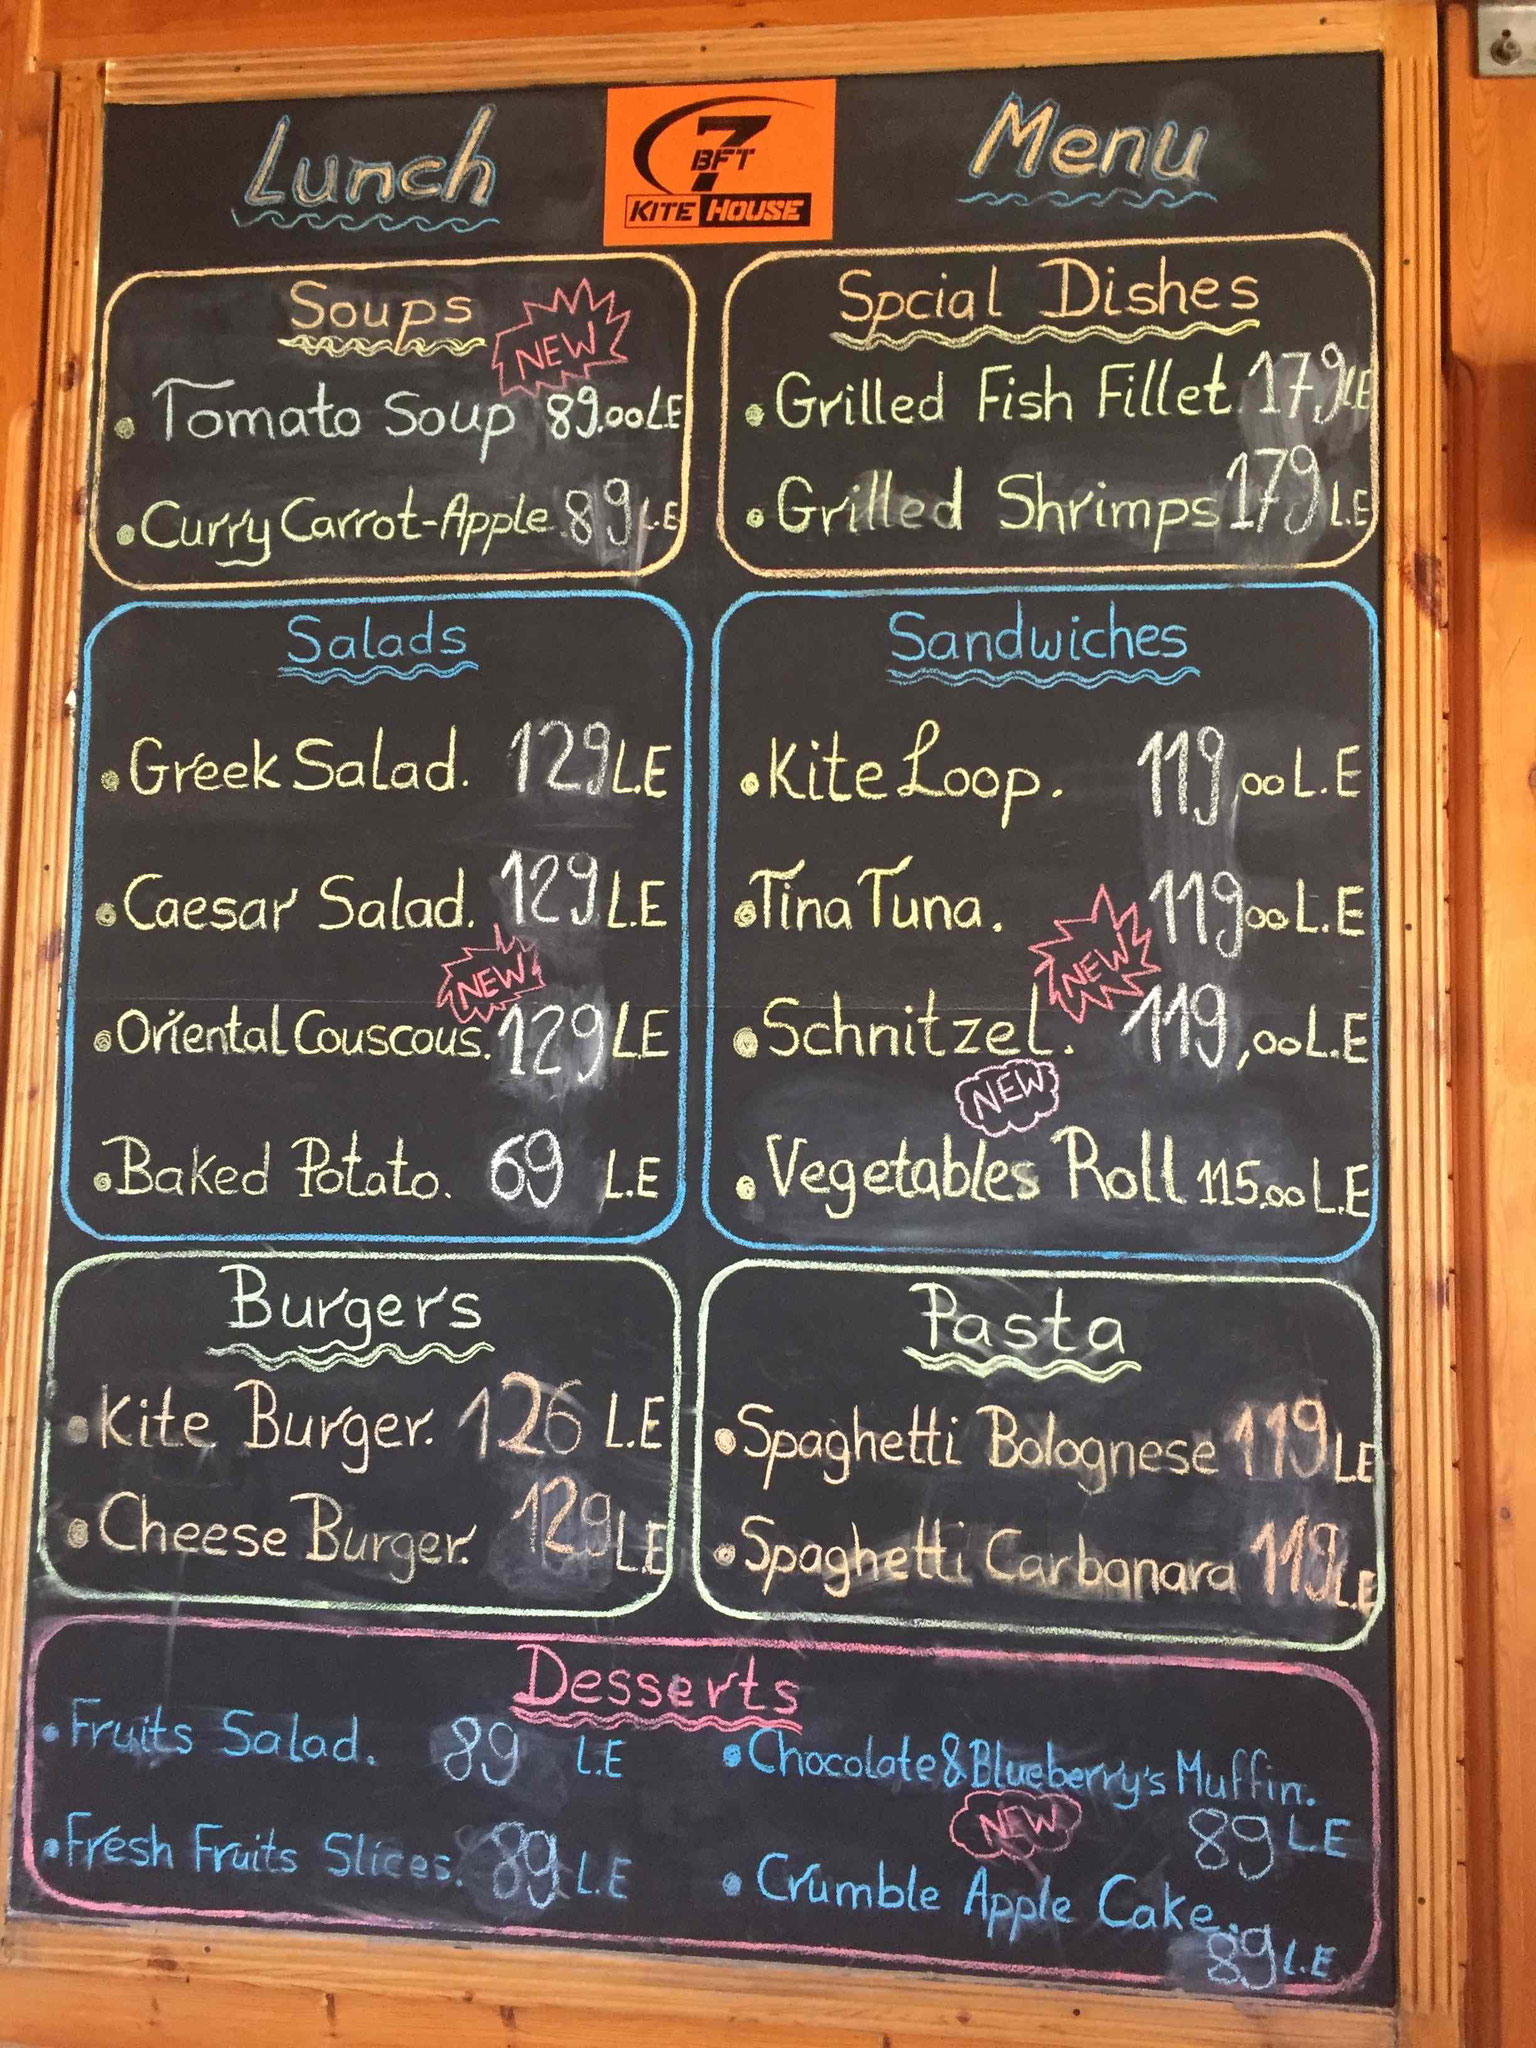 Lunch
7
BFT
KITE HOUSE
Menu
Soups
NEW
Tomato Soup 89.00 L.E
Curry Carrot-Apple 89 L.E
Spcial Dishes
Grilled Fish Fillet. 179 L.E
Grilled Shrimps 179 L.E
Salads
Greek Salad. 129 L.E
Caesar Salad. 129 L.E
NEW
Oriental Couscous. 129 L.E
Baked Potato. 69 L.E
Sandwiches
Kite Loop. 119,00 L.E
Tina Tuna. 119,00 L.E
NEW
Schnitzel. 119,00 L.E
NEW
Vegetables Roll 115.00 L.E
Burgers
Kite Burger. 126 L.E
Cheese Burger. 129 L.E
Pasta
Spaghetti Bolognese 119 L.E
Spaghetti Carbanara 119 L.E
Desserts
Fruits Salad. 89 L.E
Fresh Fruits Slices. 89 L.E
Chocolate & Blueberry's Muffin.
89 L.E
NEW
Crumble Apple Cake.
89 L.E